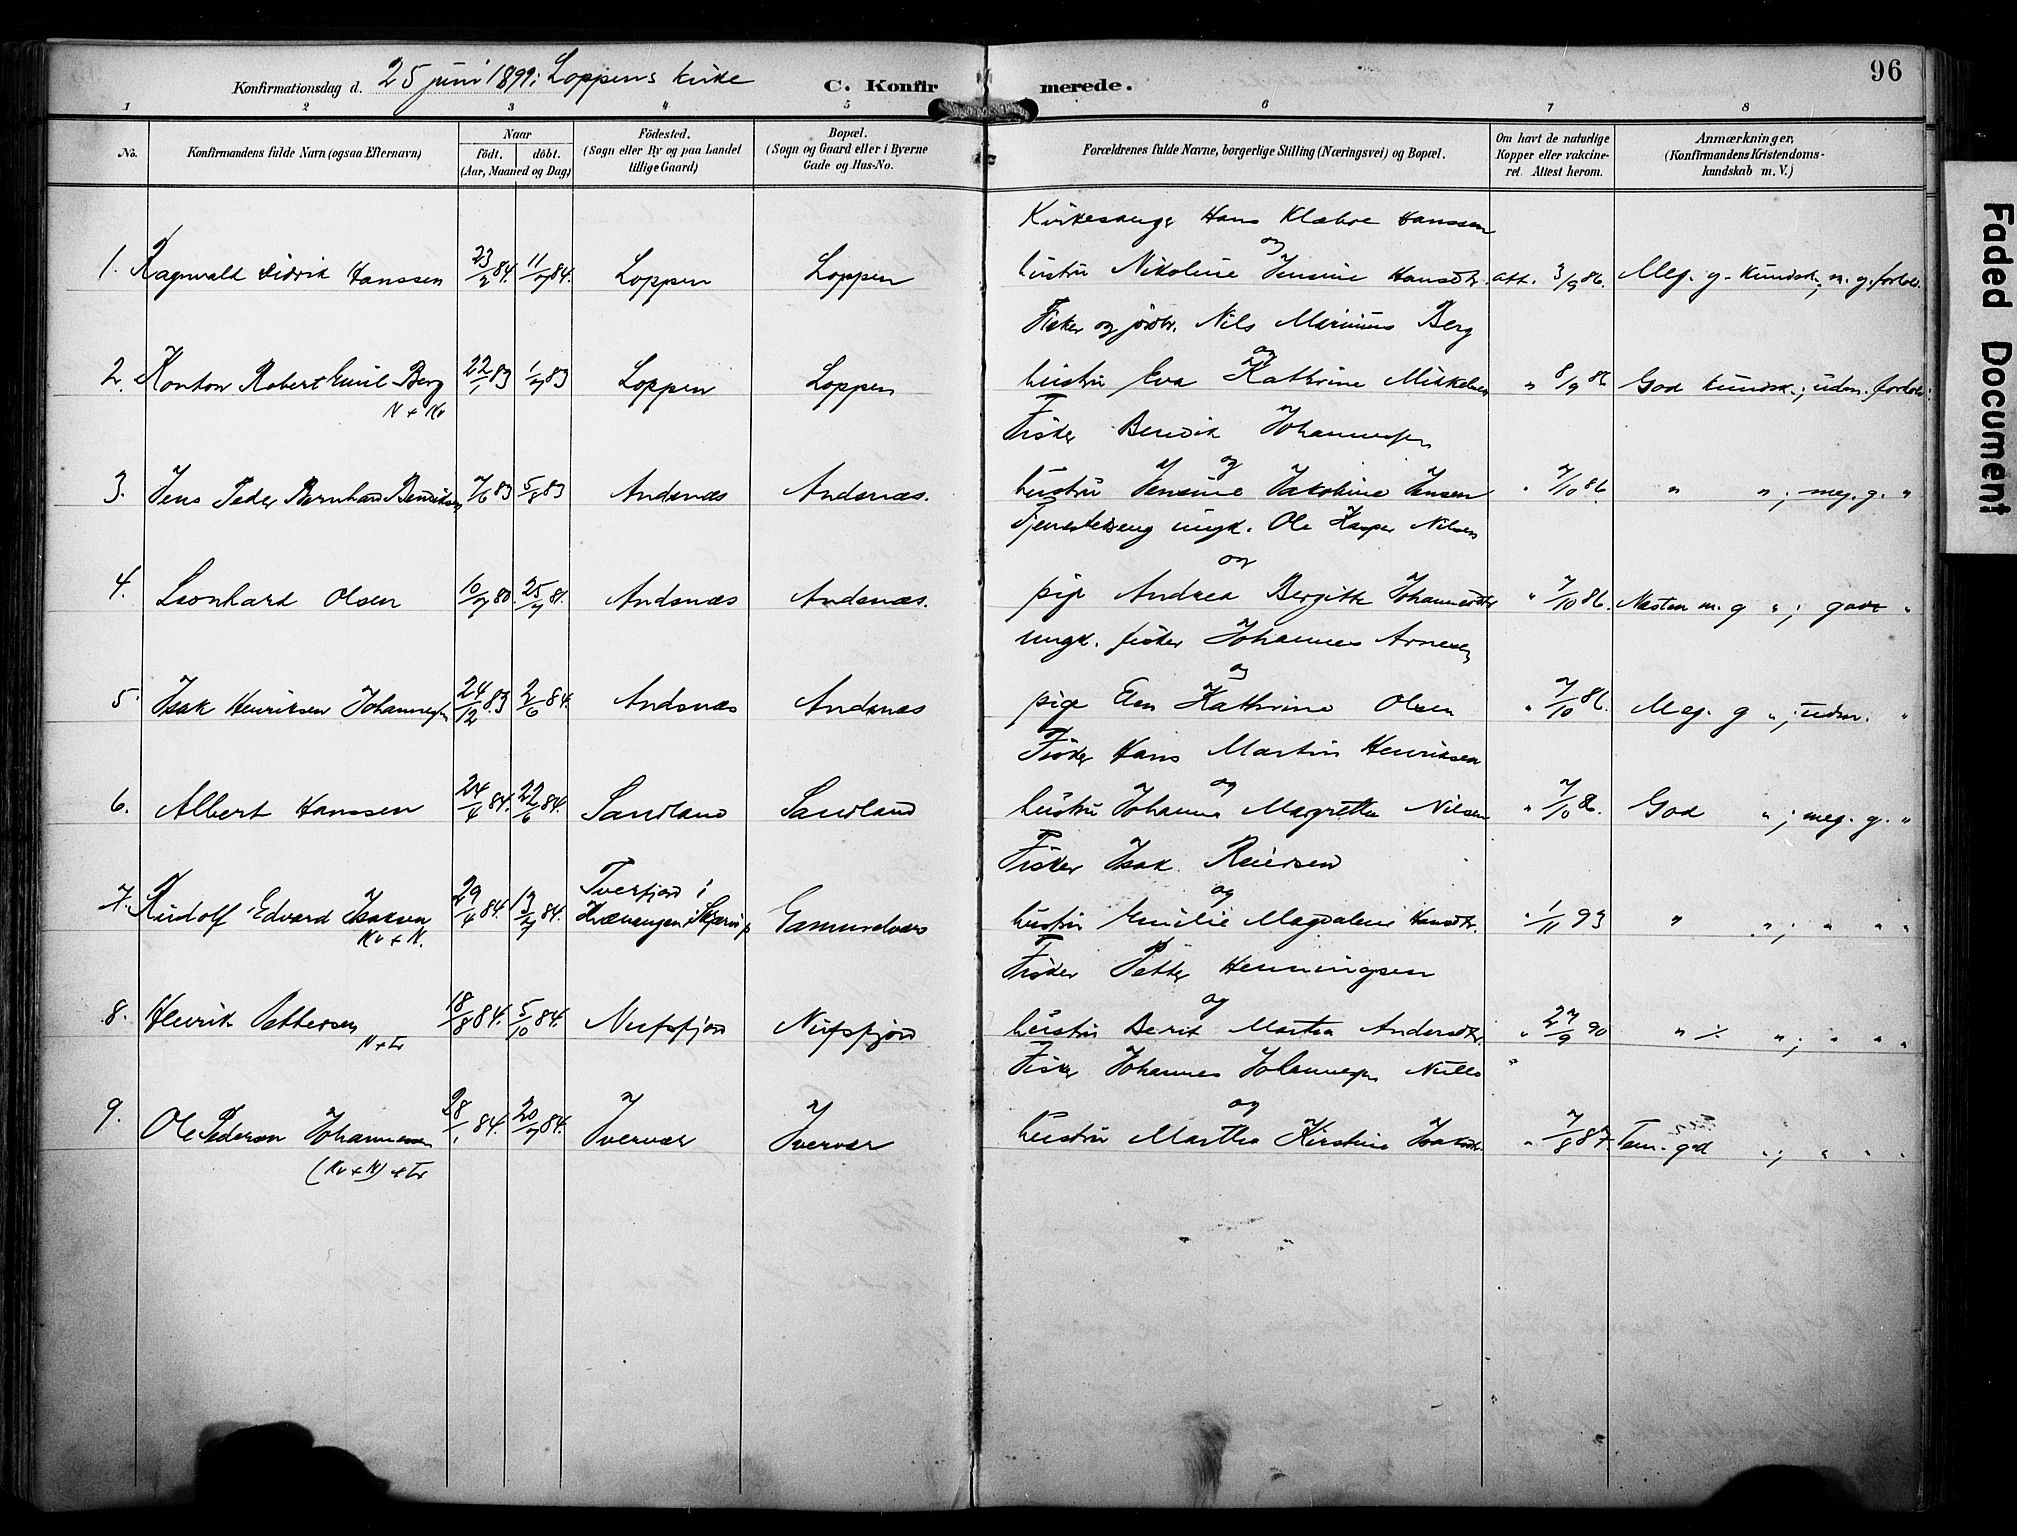 Konfirmationsdag d. 25 juni 1899 i Loppens kirke
C. Konfirmerede.
96
1 2 3 4 5 6 7 8
No.
Konfirmandens fulde Navn (ogsaa Efternavn)
Naar
födt. döbt.
(Aar, Maaned og Dag)
Födested.
(Sogn eller By og paa Landet
tillige Gaard)
Bopæl.
(Sogn og Gaard eller i Byerne
Gade og Hus-No.
Forældrenes fulde Navne, borgerlige Stilling (Næringsvei) og Bopæl.
Om havt de naturlige
Kopper eller vakcine-
ret. Attest herom.
Anmærkninger,
(Konfirmandens Kristendoms-
kundskab m. V.)
Kirkesanger Hans Klæboe Hanssen
og
1. Ragnvald Didrik Hanssen 23/2 84. 11/7 84. Loppen Loppen hustru Nikoline Jensine Hansdtr. att. 3/9 86. Meg. g. kundsk.; m. g. forhold.
Fisker og jordbr. Nils Marinius Berg
og
2. Konton Robert Emil Berg 22/1 83 1/7 83 Loppen Loppen hustru Eva Kathrine Mikkelsen " 8/9 86 God kundsk.; udm. forhold.
N + Kv
Fisker Bendik Johannessen
og
3. Jens Peder Bernhard Bendiksen 7/6 83 5/8 83 Andsnæs Andsnæs. hustru Jensine Jakobine Jensen " 7/10 86 " "; meg. g. "
Tjenestedreng ungk. Ole Kasper Nilsen
og
4. Leonhard Olsen 10/7 80. 25/7 81. Andsnæs Andsnæs. pige Andrea Bergitte Johannesdtr " 7/10 86. Næsten m. g "; god "
ungk. fisker Johannes Arnesen
og
5. Isak Henriksen Johannessen 24/12 83 2/6 84. Andsnæs Andsnæs pige Elen Kathrine Olsen " 7/10 86. Meg. g "; udm. "
Fisker Hans Martin Henriksen
og
6. Albert Hanssen 24/4 84. 22/6 84. Sandland Sandland hustru Johanna Margrethe Nilsen " 7/10 86. God "; meg. g. "
Fisker Isak Reiersen
og
Tverfjord i
7. Rudolf Edvard Isaksen 29/4 84. 13/7 84. Kvænangen i Skjervø Gamundvær hustru Emilie Magdalene Hansdtr. " 1/11 93 " "; " " "
Kv + N.
Fisker Petter Henningsen
og
8. Henrik Pettersen 18/8 84. 5/10 84. Nufsfjord Nufsfjord hustru Berit Martha Andersdtr. " 27/9 90 " "; " " "
N + Fr
Fisker Johannes Johannessen
og
9. Ole Pedersen Johannessen 28/1 84. 20/7 84. Ivervær Ivervær hustru Martha Kirstine Isaksdtr. " 7/8 87. Tem. god "; " " "
(Kv + N) + Fr
Faded Document